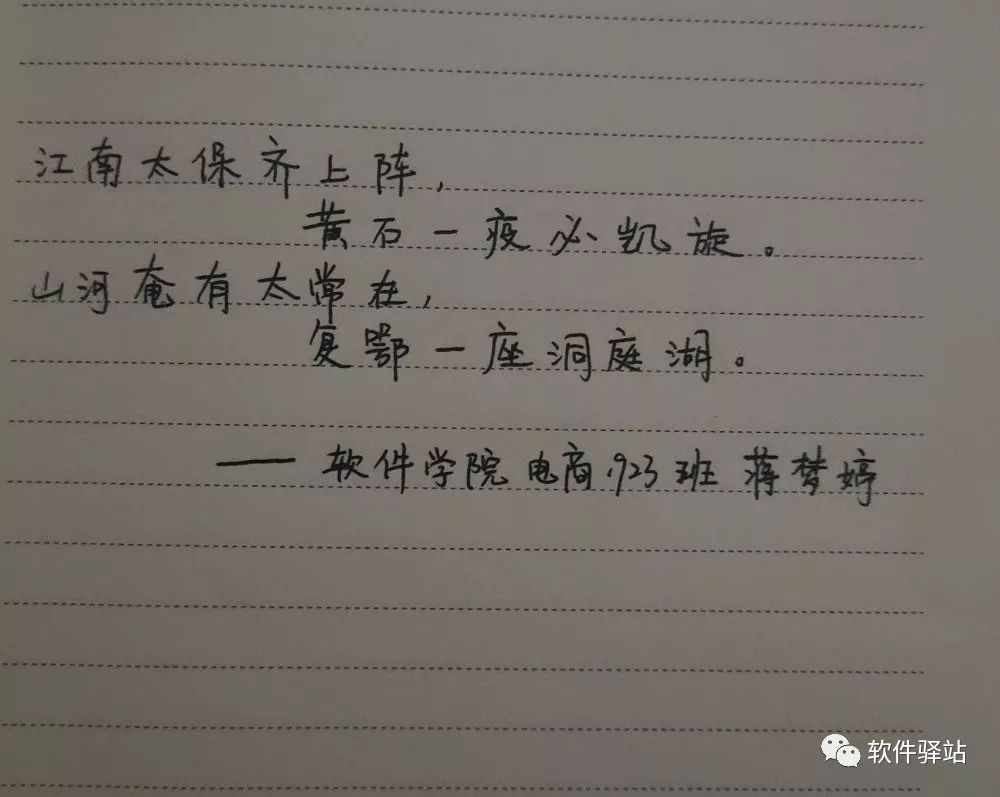 江南太保齐上阵，
黄石一疫必凯旋。
山河奄有太常在，
复鄂一座洞庭湖。
——软件学院电商1923班 蒋梦婷
软件驿站